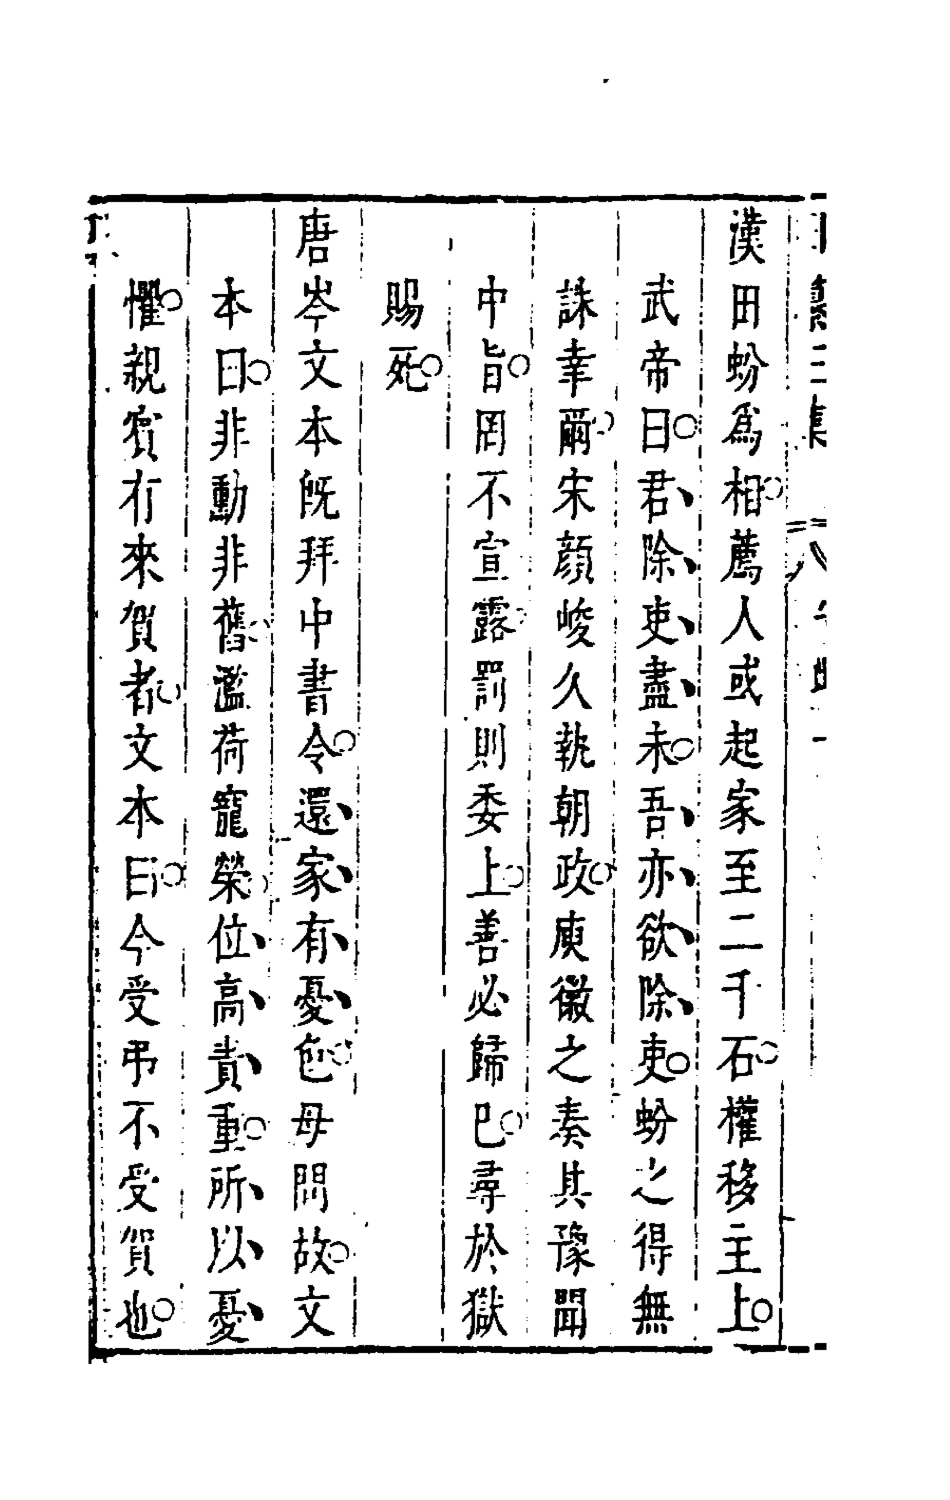 漢田蚡爲相薦人或起家至二千石權移主上
武帝曰君除吏盡未吾亦欲除吏蚡之得無
誅幸爾宋顔峻久執朝政庾徽之奏其豫聞
中旨罔不宣露罰則委上善必歸已尋於獄
賜死
唐岑文本旣拜中書令還家有憂色母問故文
本曰非勳非舊濫荷寵榮位高責重所以憂
懼親賓有來賀者文本曰今受弔不受賀也